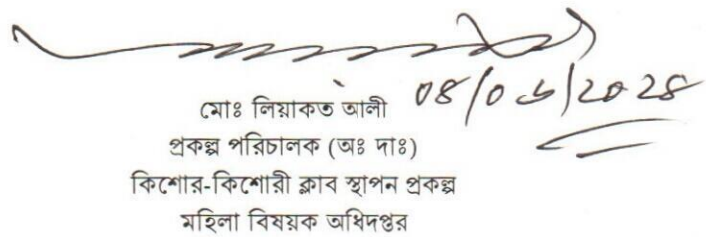 ০৪/০৬/২০২৪
মোঃ লিয়াকত আলী
প্রকল্প পরিচালক (অঃ দাঃ)
কিশোর-কিশোরী ক্লাব স্থাপন প্রকল্প
মহিলা বিষয়ক অধিদপ্তর